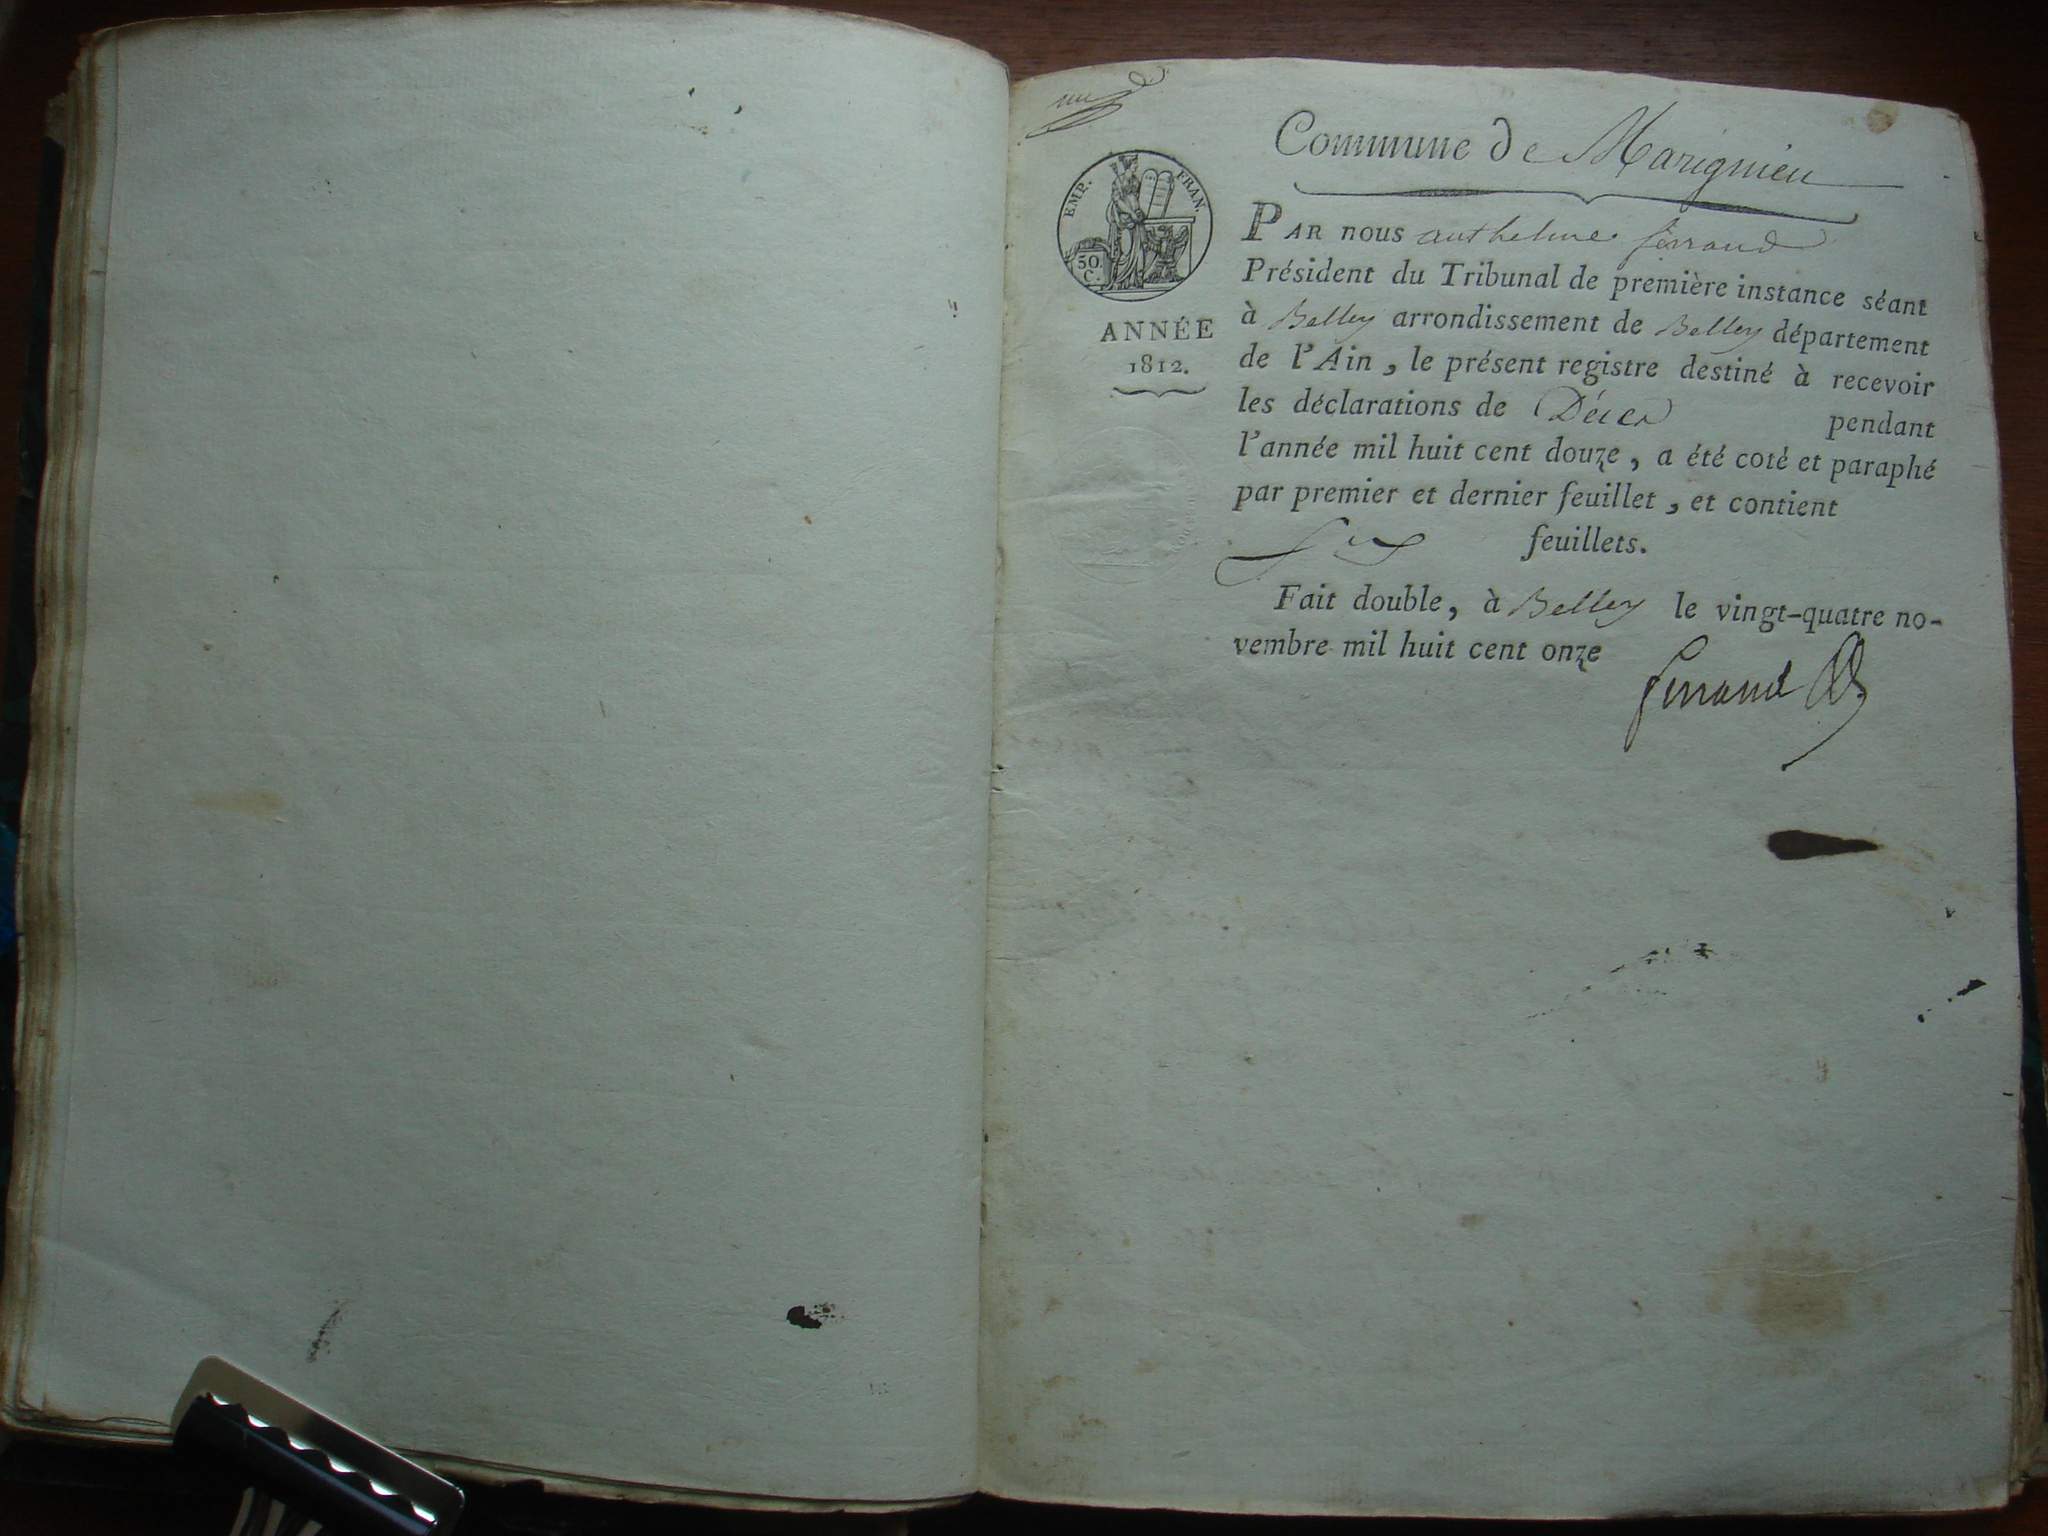 Commune de Marignieu
EMP. FRAN.
50.
C.
ANNÉE
1812.
PAR nous anthelme ferrand
Président du Tribunal de première instance séant
à Belley arrondissement de Belley département
de l'Ain, le présent registre destiné à recevoir
les déclarations de Décès pendant
l'année mil huit cent douze, a été coté et paraphé
par premier et dernier feuillet, et contient
Six feuillets.
Fait double, à Belley le vingt-quatre no-
vembre mil huit cent onze
ferrand